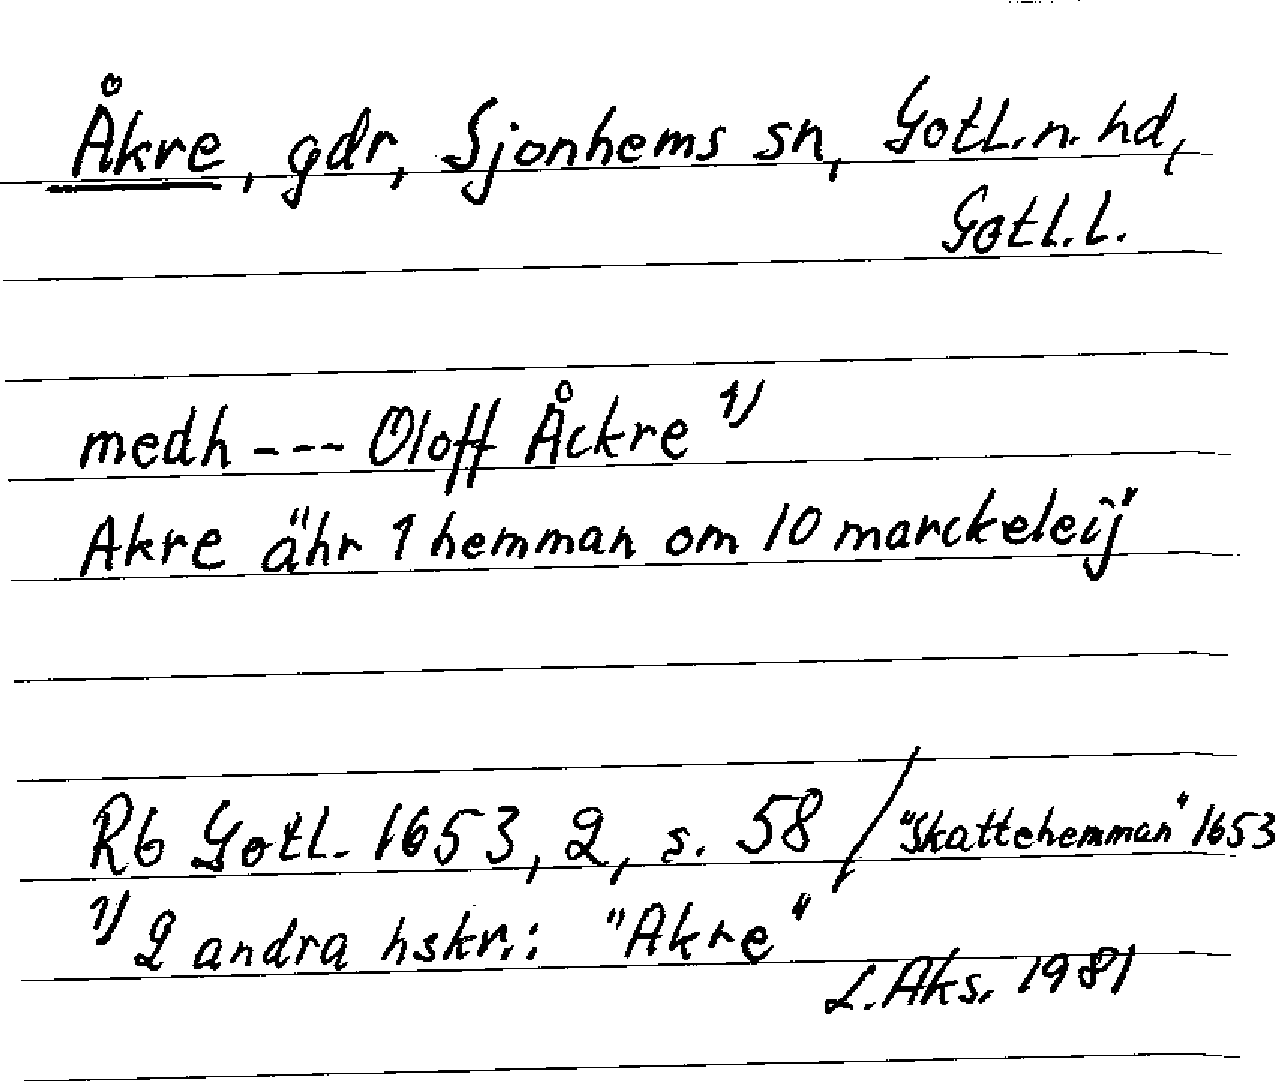 Åkre, gdr, Sjonhems sn, Gotl.n. hd,
Gotl.l.
medh --- Oloff Åckre 1)
Akre ähr 1 hemman om 10 marckeleij
Rb Gotl. 1653, 2, s. 58 / "Skattehemman" 1653
1) 2 andra hskr.: "Akre"
L.Aks. 1981